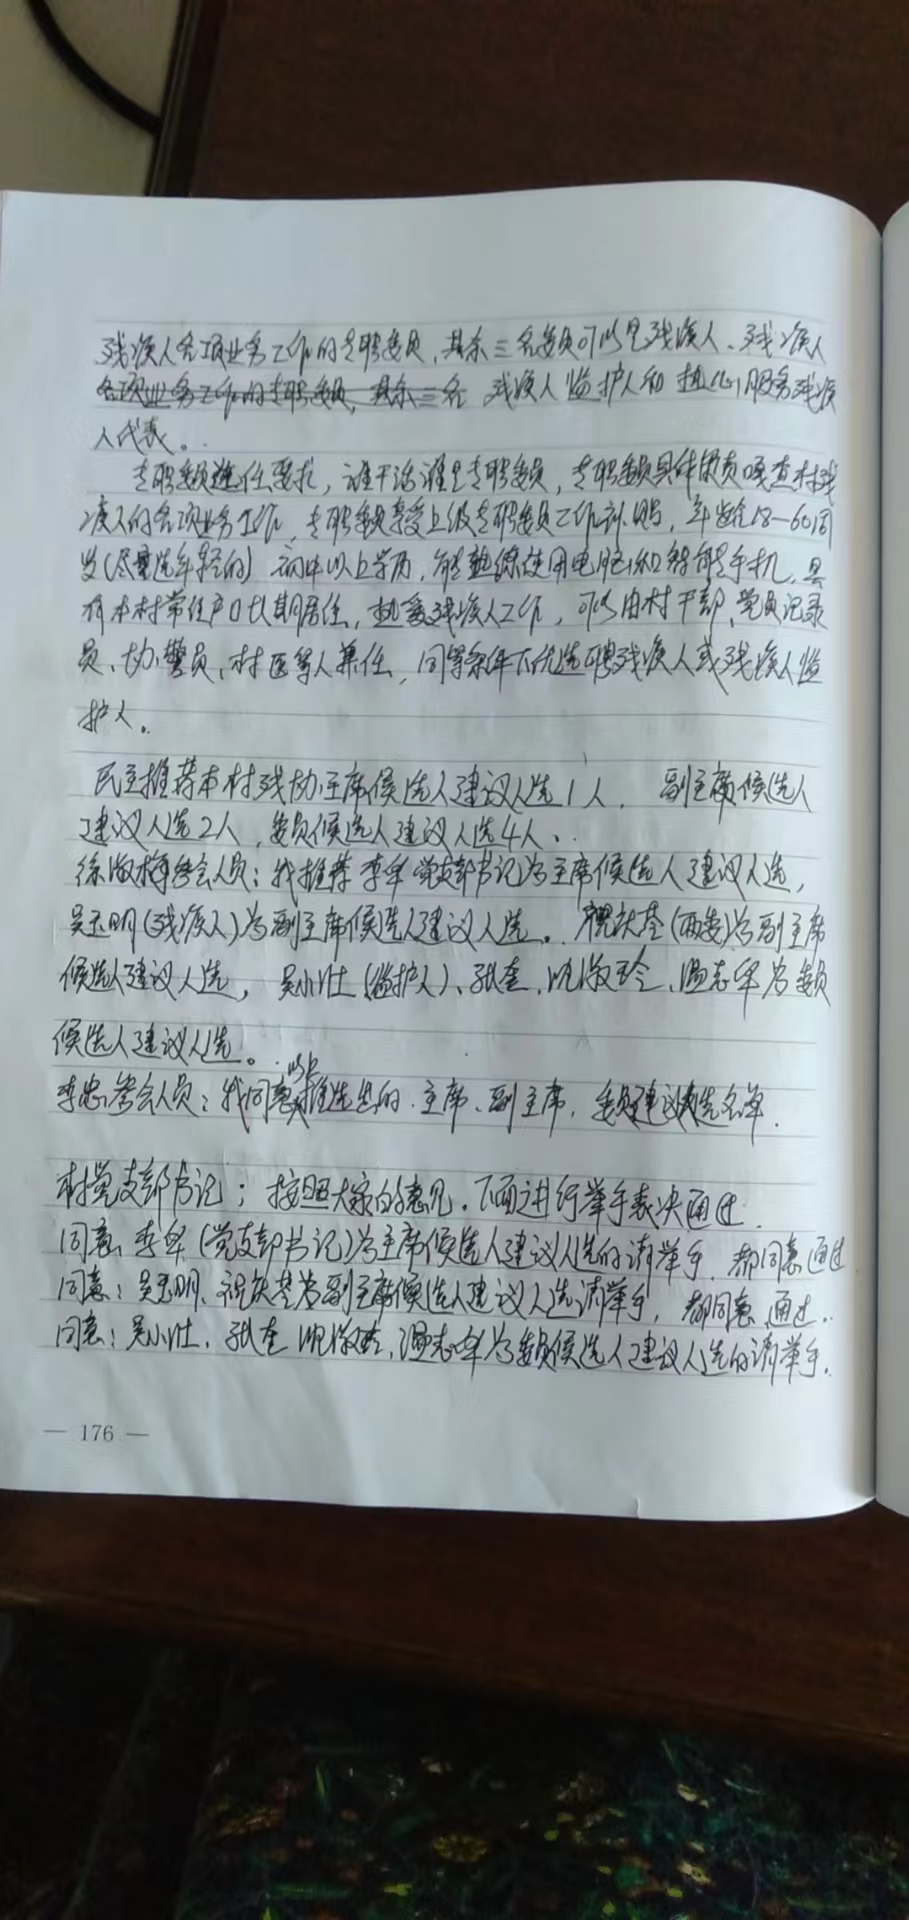 残疾人各项业务工作的专职委员,其余三名委员可以是残疾人、残疾人
各项业务工作的专职委员,其余三名 残疾人监护人和热心服务残疾
人代表。
专职委员选任要求,谁干活谁是专职委员,专职委员具体负责嘎查村残
疾人的各项业务工作,专职委员享受上级专职委员工作补贴,年龄在18—60周
岁(尽量选年轻的)初中以上学历,能熟练使用电脑和智能手机,具
有本村常住户口长期居住,热爱残疾人工作,可以由村干部、党员记录
员、协警员、村医等人兼任,同等条件下优选聘残疾人或残疾人监
护人。
民主推荐本村残协主席候选人建议人选1人,副主席候选人
建议人选2人,委员候选人建议人选4人。
徐海梅参会人员:我推荐李军党支部书记为主席候选人建议人选,
吴玉明(残疾人)为副主席候选人建议人选。(两委)为副主席
候选人建议人选,吴小壮(监护人)、张奎、沈淑玲、温志军为委员
候选人建议人选。
李忠参会人员:我同意以上推选出的主席、副主席,委员建议人选名单.
村党支部书记:按照大家的意见,下面进行举手表决通过.
同意李军(党支部书记)为主席候选人建议人选的请举手,都同意通过
同意:吴玉明、为副主席候选人建议人选请举手,都同意,通过.
同意:吴小壮,张奎 沈淑玲,温志军为委员候选人建议人选的请举手.
— 176 —